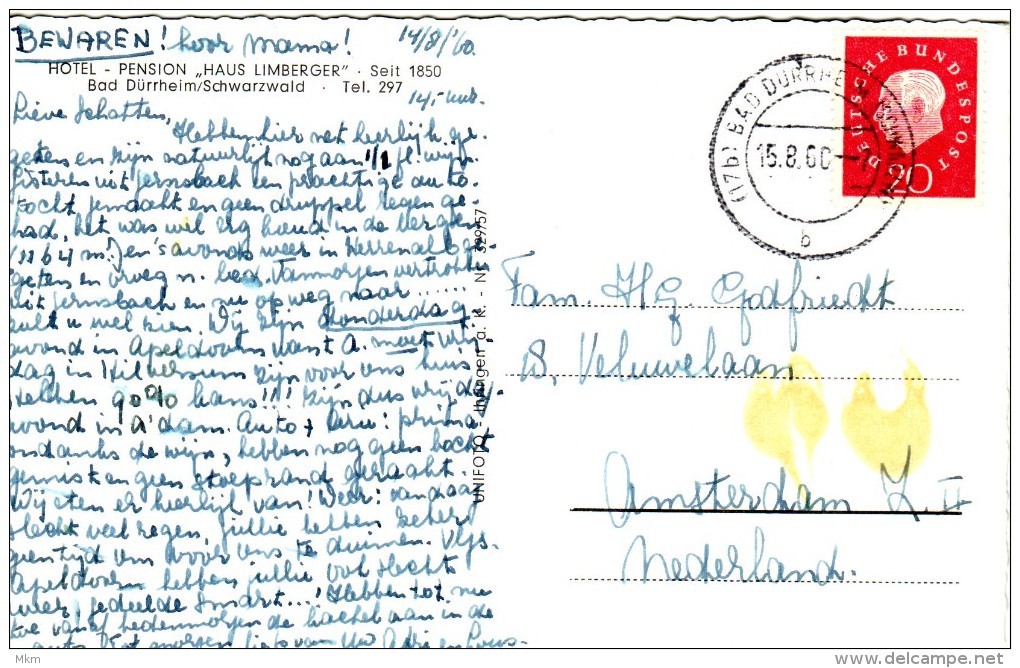 BEWAREN! hoor mama! 14/8/'60.
HOTEL - PENSION „HAUS LIMBERGER" · Seit 1850
Bad Dürrheim/Schwarzwald · Tel. 297
14,- uur.
Lieve Schatten,
Hebben hier net heerlijk ge-
geten en zijn natuurlijk nog aan 1/1 fl. wijn.
Gisteren uit Gernsbach een prachtige auto-
tocht gemaakt en geen druppel regen ge-
had, het was wel erg koud in de bergen
(1164 m!) en 's avonds weer in Herrenalb ge-
geten en vroeg n. bed. Vanmorgen vertrokken
uit Gernsbach en nu op weg naar ......
zult u wel zien. Wij zijn donderdag-
avond in Apeldoorn want A. moet vrij-
dag in Hilversum zijn voor ons huis
hebben 90% kans!!! Zijn dus vrijdag-
avond in A'dam. Auto + Arie: prima
ondanks de wijn, hebben nog geen bocht
gemist en geen stoeprand geraakt.
Wij eten er heerlijk van! Weer: vandaag
slecht veel regen, jullie hebben zeker
geen tijd om voor ons te duimen. Vlgs.
Apeldoorn hebben jullie ook slecht
weer, gedeelde smart...! Hebben tot nu
toe vanaf hedenmorgen de kachel aan in de
auto. Tot morgen, liefs van Uw
UNIFOTO - Ihringen a. K. - Nr. 329/57
DEUTSCHE BUNDESPOST
20
(17b) BAD DÜRRHEIM
15.8.60
b
Fam. H.G. Godfriedt
18, Veluwelaan
Amsterdam Z. II
Nederland.
Mkm
delcampe.net